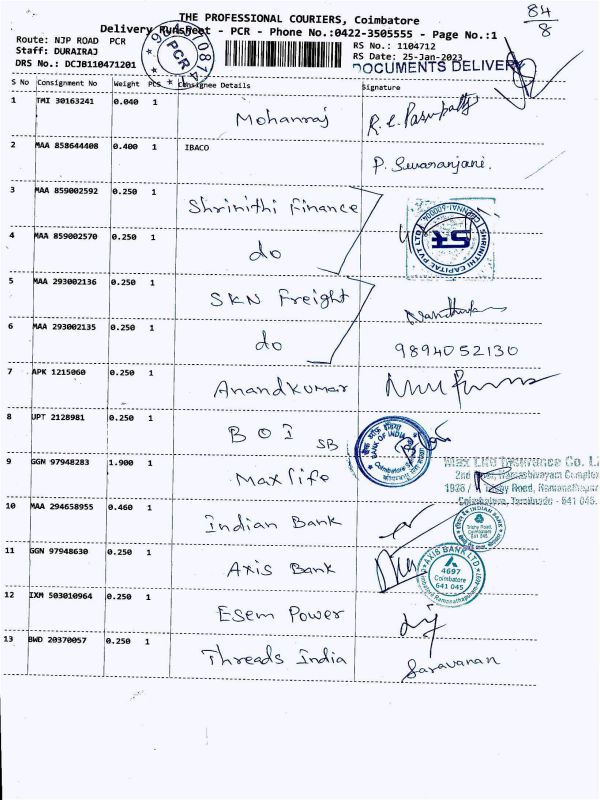 84
8
THE PROFESSIONAL COURIERS, Coimbatore
Delivery Runsheet - PCR - Phone No.:0422-3505555 - Page No.:1
Route: NJP ROAD PCR
RS No.: 1104712
Staff: DURAIRAJ
RS Date: 25-Jan-2023
DRS No.: DCJB110471201
DOCUMENTS DELIVERY
PCR
S No Consignment No Weight PCS Consignee Details Signature
1 TMI 30163241 0.040 1 Mohanraj
2 MAA 858644408 0.400 1 IBACO P. Suvaranjani.
3 MAA 859002592 0.250 1 Shrinithi Finance
SHRINITHI CAPITAL PVT LTD
4 MAA 859002570 0.250 1 do
5 MAA 293002136 0.250 1 SKN Freight
6 MAA 293002135 0.250 1 do 9894052130
7 APK 1215060 0.250 1 Anandkumar
8 UPT 2128981 0.250 1 BOI SB
BANK OF INDIA
9 GGN 97948283 1.900 1 Maxlife
Max Life Insurance Co. L
Road, Ramanathapur
Coimbatore, Tamilnadu - 641 045.
10 MAA 294658955 0.460 1 Indian Bank
INDIAN BANK
Trichy Road,
Coimbatore
641 045
11 GGN 97948630 0.250 1 Axis Bank
AXIS BANK LTD
4697
Coimbatore
641 045
12 IXM 503010964 0.250 1 Esem Power
13 BWD 20370057 0.250 1 Threads India Saravanan